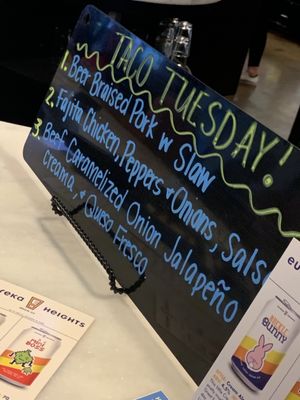 TACO TUESDAY!
1. Beer Braised Pork w Slaw
2. Fajita Chicken, Peppers + Onions, Salsa
3. Beef, Caramelized Onion Jalapeño
Crema, + Queso Fresco
EUREKA HEIGHTS
MINI
BOSS
eu
BUCKLE
BUNNY